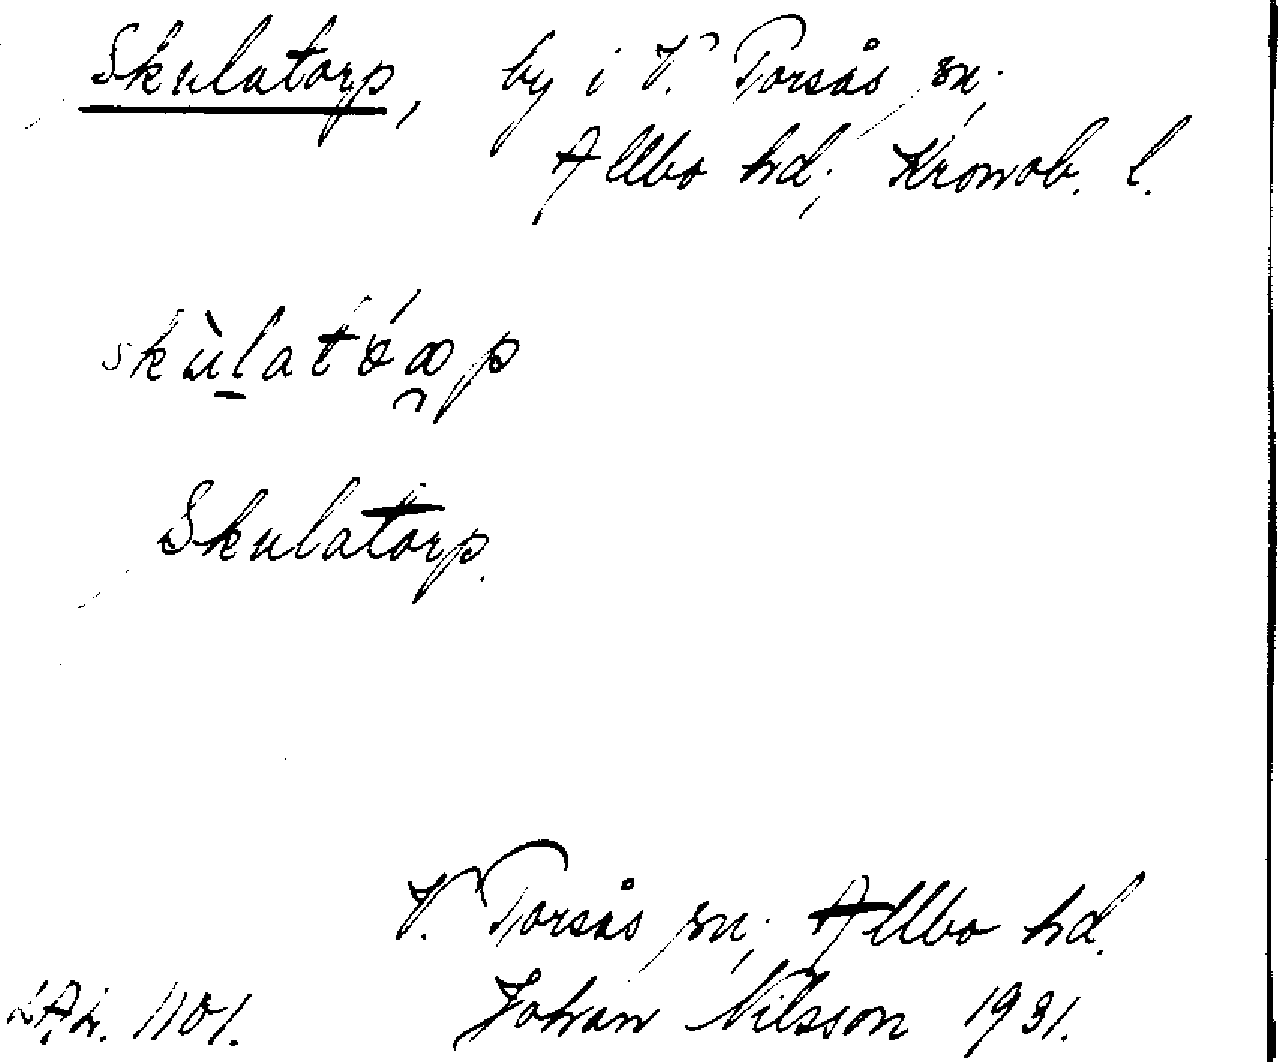 Skulatorp, by i V. Torsås sn;
Allbo hd; Kronob. l.
Skulatorp.
V. Torsås sn; Allbo hd.
Johan Nilsson 1931.